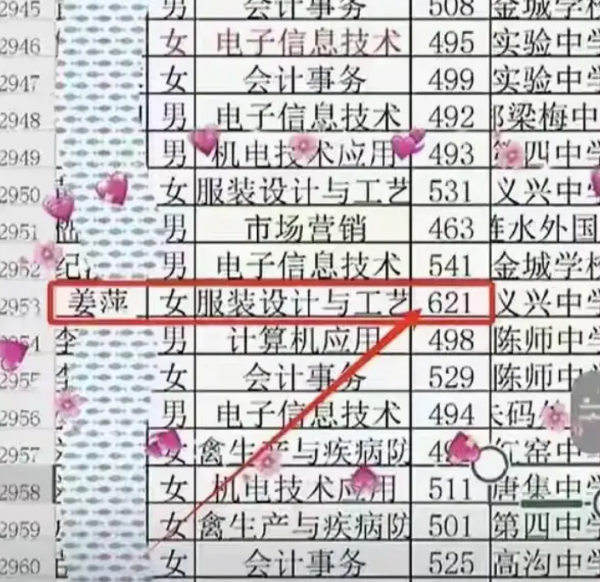 2945 男 会计事务 508 金城学校
2946 女 电子信息技术 495 实验中学
2947 女 会计事务 499 实验中学
2948 男 电子信息技术 492 郑梁梅中
2949 男 机电技术应用 493 第四中学
2950 女 服装设计与工艺 531 义兴中学
2951 男 市场营销 463 涟水外国
2952 纪 男 电子信息技术 541 金城学校
2953 姜萍 女 服装设计与工艺 621 义兴中学
2954 李 男 计算机应用 498 陈师中学
2955 女 会计事务 529 陈师中学
2956 男 电子信息技术 494 朱码
2957 女 禽生产与疾病防 红窑中
2958 女 机电技术应用 511 唐集中学
2959 女 禽生产与疾病防 501 第四中学
2960 女 会计事务 525 高沟中学